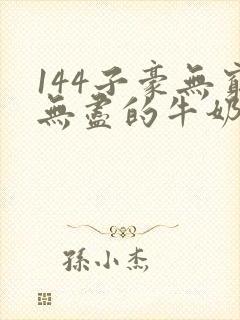 144子豪無窮
無盡的牛奶
孫小杰